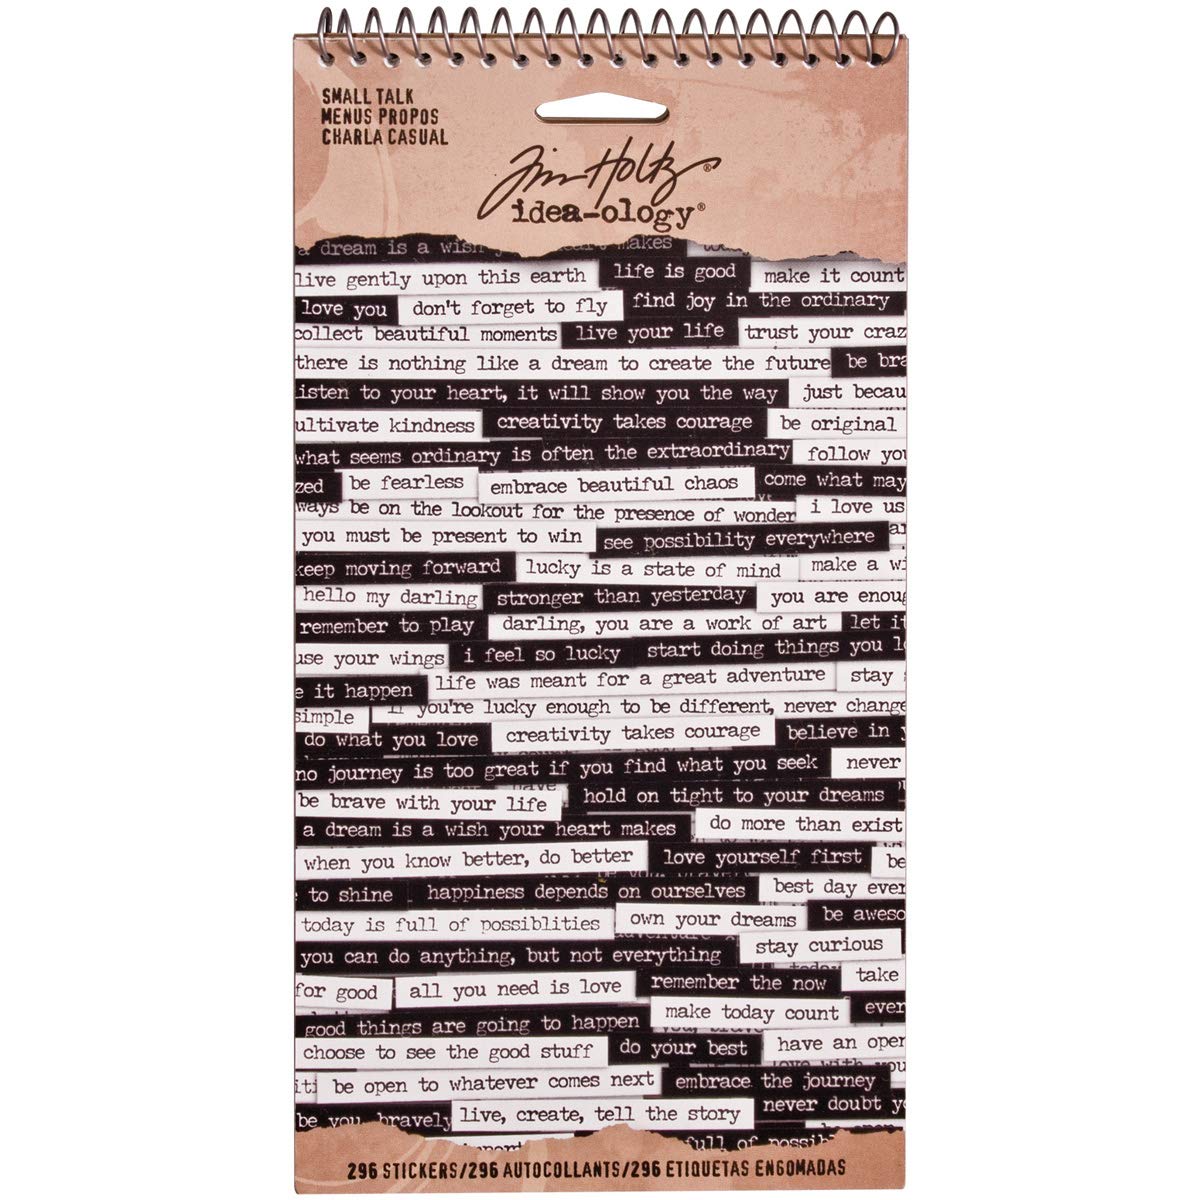 SMALL TALK
MENUS PROPOS
CHARLA CASUAL
Tim Holtz®
idea-ology®
a dream is a wish your heart makes today
live gently upon this earth life is good make it count
love you don't forget to fly find joy in the ordinary
collect beautiful moments live your life trust your craz
there is nothing like a dream to create the future be bra
listen to your heart, it will show you the way just becau
ultivate kindness creativity takes courage be original
what seems ordinary is often the extraordinary follow you
zed be fearless embrace beautiful chaos come what may
ways be on the lookout for the presence of wonder i love us
you must be present to win see possibility everywhere
keep moving forward lucky is a state of mind make a wi
hello my darling stronger than yesterday you are enoug
remember to play darling, you are a work of art let it
use your wings i feel so lucky start doing things you lo
e it happen life was meant for a great adventure stay s
simple if you're lucky enough to be different, never change
do what you love creativity takes courage believe in y
no journey is too great if you find what you seek never
be brave with your life hold on tight to your dreams
a dream is a wish your heart makes do more than exist
when you know better, do better love yourself first be
to shine happiness depends on ourselves best day ever
today is full of possiblities own your dreams be aweso
you can do anything, but not everything stay curious
for good all you need is love remember the now take
make today count ever
good things are going to happen
choose to see the good stuff do your best have an oper
iti be open to whatever comes next embrace the journey
be you, bravely live, create, tell the story never doubt y
full of possibl
296 STICKERS/296 AUTOCOLLANTS/296 ETIQUETAS ENGOMADAS